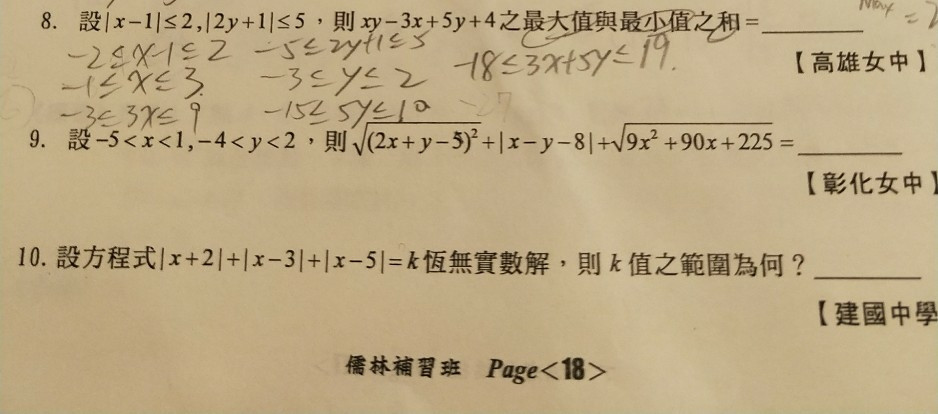 8. 設|x-1|≤2,|2y+1|≤5，則xy-3x+5y+4之最大值與最小值之和=______
-2≤x-1≤2 -5≤2y+1≤5
-1≤x≤3 -3≤y≤2 -18≤3x+5y≤19.
【高雄女中】
-3≤3x≤9 -15≤5y≤10
9. 設-5<x<1,-4<y<2，則√(2x+y-5)²+|x-y-8|+√9x²+90x+225=______
【彰化女中】
10. 設方程式|x+2|+|x-3|+|x-5|=k恆無實數解，則k值之範圍為何？______
【建國中學
儒林補習班 Page<18>